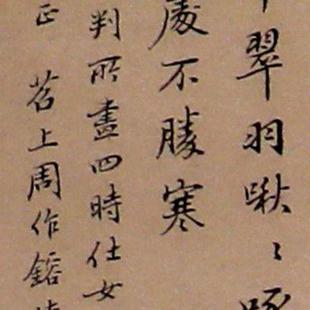 翠羽啾〻
處不勝寒
判所畫四時仕女
正 苕上周作鎔